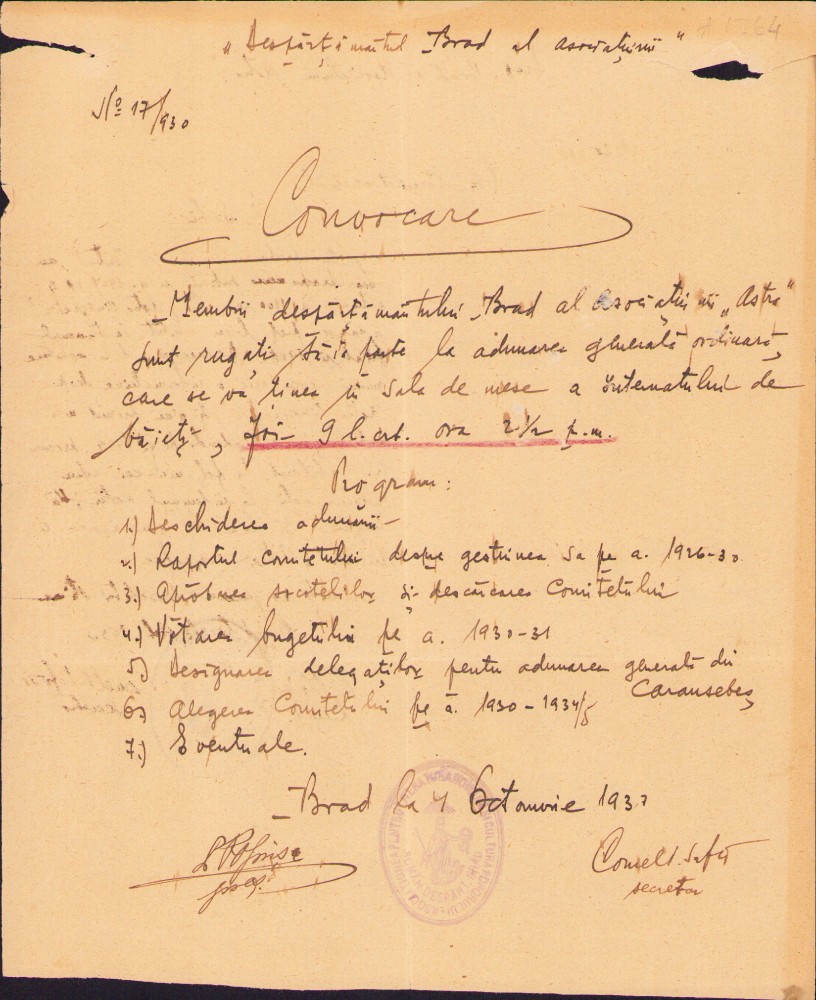 „Despărțământul Brad al asociațiunii"
A 15/64
No 17/930
Convocare
Membrii despărțământului Brad al asociațiunii „Astra"
sunt rugați să ia parte la adunarea generală ordinară,
care se va ținea în sala de mese a internatului de
băieți, Joi 9 l. crt. ora 2 1/2 p.m.
Program:
1.) Deschiderea adunării
2.) Raportul comitetului despre gestiunea sa pe a. 1926-30.
3.) Aprobarea socotelilor și descărcarea Comitetului
4.) Votarea bugetului pe a. 1930-31
5.) Designarea delegaților pentru adunarea generală din
Caransebeș
6) Alegerea Comitetului pe a. 1930-1934/5
7.) Eventuale.
Brad la 4 Octomvrie 193
preș.
secretar